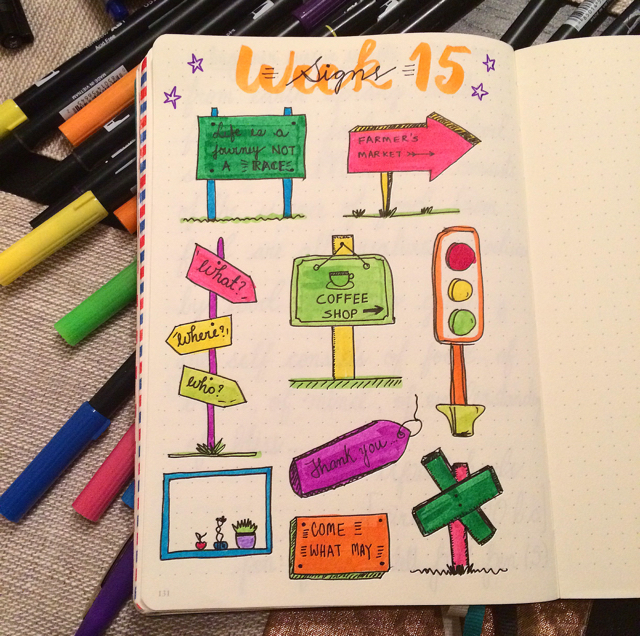 Week 15
Signs
Life is a
journey NOT
A RACE
FARMER'S
MARKET
What?
Where?
Who?
COFFEE
SHOP
Thank you...
COME
WHAT MAY